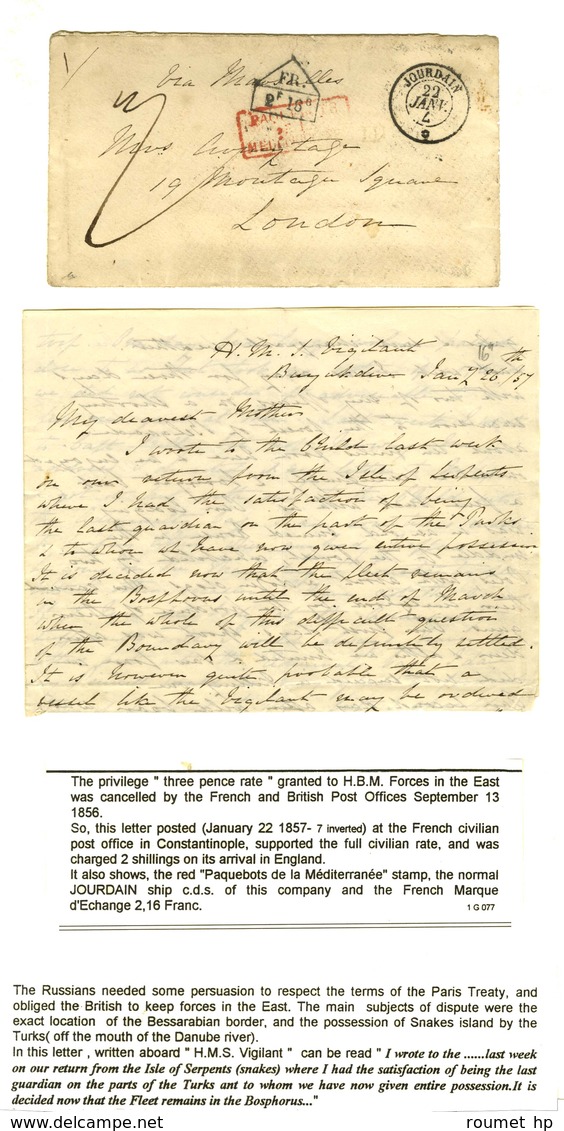 Via Marseilles
FR.
2F 16c
PAQUEBOTS
MEDIT
JOURDAIN
22
JANV.
2
19 Montagu Square
London
H. M. S. Vigilant
16th
Jany 26 /57
My dearest Mother
I wrote to the Child last week
on our return from the Isle of Serpents
where I had the satisfaction of being
the last guardian on the part of the Turks
& to whom we have now given entire possession
It is decided now that the fleet remains
in the Bosphorus until the end of March
when the whole of this difficult question
of the Boundary will be definitely settled.
It is however quite probable that a
vessel like the Vigilant may be ordered
The privilege " three pence rate " granted to H.B.M. Forces in the East
was cancelled by the French and British Post Offices September 13
1856.
So, this letter posted (January 22 1857- 7 inverted) at the French civilian
post office in Constantinople, supported the full civilian rate, and was
charged 2 shillings on its arrival in England.
It also shows, the red "Paquebots de la Méditerranée" stamp, the normal
JOURDAIN ship c.d.s. of this company and the French Marque
d'Echange 2,16 Franc. 1 G 077
The Russians needed some persuasion to respect the terms of the Paris Treaty, and
obliged the British to keep forces in the East. The main subjects of dispute were the
exact location of the Bessarabian border, and the possession of Snakes island by the
Turks( off the mouth of the Danube river).
In this letter , written aboard " H.M.S. Vigilant " can be read " I wrote to the ......last week
on our return from the Isle of Serpents (snakes) where I had the satisfaction of being the last
guardian on the parts of the Turks ant to whom we have now given entire possession.It is
decided now that the Fleet remains in the Bosphorus..."
delcampe.net
roumet hp